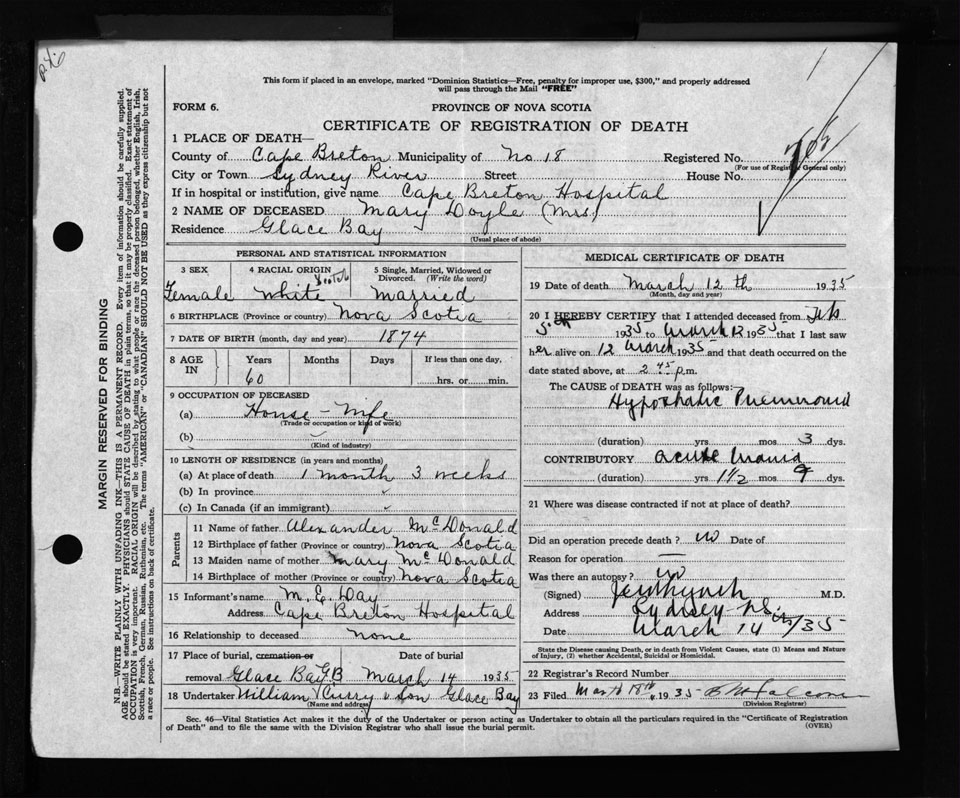 This form if placed in an envelope, marked "Dominion Statistics—Free, penalty for improper use, $300," and properly addressed
will pass through the Mail "FREE"
FORM 6.
PROVINCE OF NOVA SCOTIA
CERTIFICATE OF REGISTRATION OF DEATH
1 PLACE OF DEATH—
County of Cape Breton Municipality of No 18 Registered No.
(For use of Registrar General only)
City or Town Sydney River Street House No.
If in hospital or institution, give name Cape Breton Hospital
2 NAME OF DECEASED Mary Doyle (Mrs.)
Residence Glace Bay
(Usual place of abode)
PERSONAL AND STATISTICAL INFORMATION
3 SEX 4 RACIAL ORIGIN 5 Single, Married, Widowed or
Divorced. (Write the word)
Scotch
Female White Married
6 BIRTHPLACE (Province or country) Nova Scotia
7 DATE OF BIRTH (month, day and year) 1874
8 AGE IN Years Months Days If less than one day,
60 hrs. or min.
9 OCCUPATION OF DECEASED
(a) House-Wife
(Trade or occupation or kind of work)
(b)
(Kind of industry)
10 LENGTH OF RESIDENCE (in years and months)
(a) At place of death 1 month 3 weeks
(b) In province
(c) In Canada (if an immigrant)
Parents
11 Name of father Alexander McDonald
12 Birthplace of father (Province or country) Nova Scotia
13 Maiden name of mother Mary McDonald
14 Birthplace of mother (Province or country) Nova Scotia
15 Informant's name M. E. Day
Address Cape Breton Hospital
16 Relationship to deceased none
17 Place of burial, cremation or Date of burial
removal Glace Bay C.B March 14 1935
18 Undertaker William Curry & Son Glace Bay
(Name and address)
MEDICAL CERTIFICATE OF DEATH
19 Date of death March 12 th 1935
(Month, day and year)
20 I HEREBY CERTIFY that I attended deceased from Feb
1935 to March 12 1935 that I last saw
her alive on 12 March 1935 and that death occurred on the
date stated above, at 2 45 p.m.
The CAUSE OF DEATH was as follows:
Hypostatic Pneumonia
(duration) yrs. mos 3 dys.
CONTRIBUTORY acute Mania
(duration) yrs 1 1/2 mos dys.
21 Where was disease contracted if not at place of death?
Did an operation precede death? no Date of
Reason for operation —
Was there an autopsy? no
(Signed) M.D.
Address Sydney N.S.
Date March 14 th/35
State the Disease causing Death, or in death from Violent Causes, state (1) Means and Nature
of Injury, (2) whether Accidental, Suicidal or Homicidal.
22 Registrar's Record Number
23 Filed 1935
(Division Registrar)
Sec. 46—Vital Statistics Act makes it the duty of the Undertaker or person acting as Undertaker to obtain all the particulars required in the "Certificate of Registration
of Death" and to file the same with the Division Registrar who shall issue the burial permit. (OVER)
MARGIN RESERVED FOR BINDING
N.B.—WRITE PLAINLY WITH UNFADING INK—THIS IS A PERMANENT RECORD. Every item of information should be carefully supplied.
AGE should be stated EXACTLY. PHYSICIANS should STATE CAUSE OF DEATH in plain terms, so that it may be properly classified. Exact statement of
OCCUPATION is very important. RACIAL ORIGIN will be described by stating to what people or race the deceased person belonged, whether English, Irish,
Scottish, French, German, Russian, Ruthenian, etc. The terms "AMERICAN" or "CANADIAN" SHOULD NOT BE USED as they express citizenship but not
a race or people. See instructions on back of certificate.